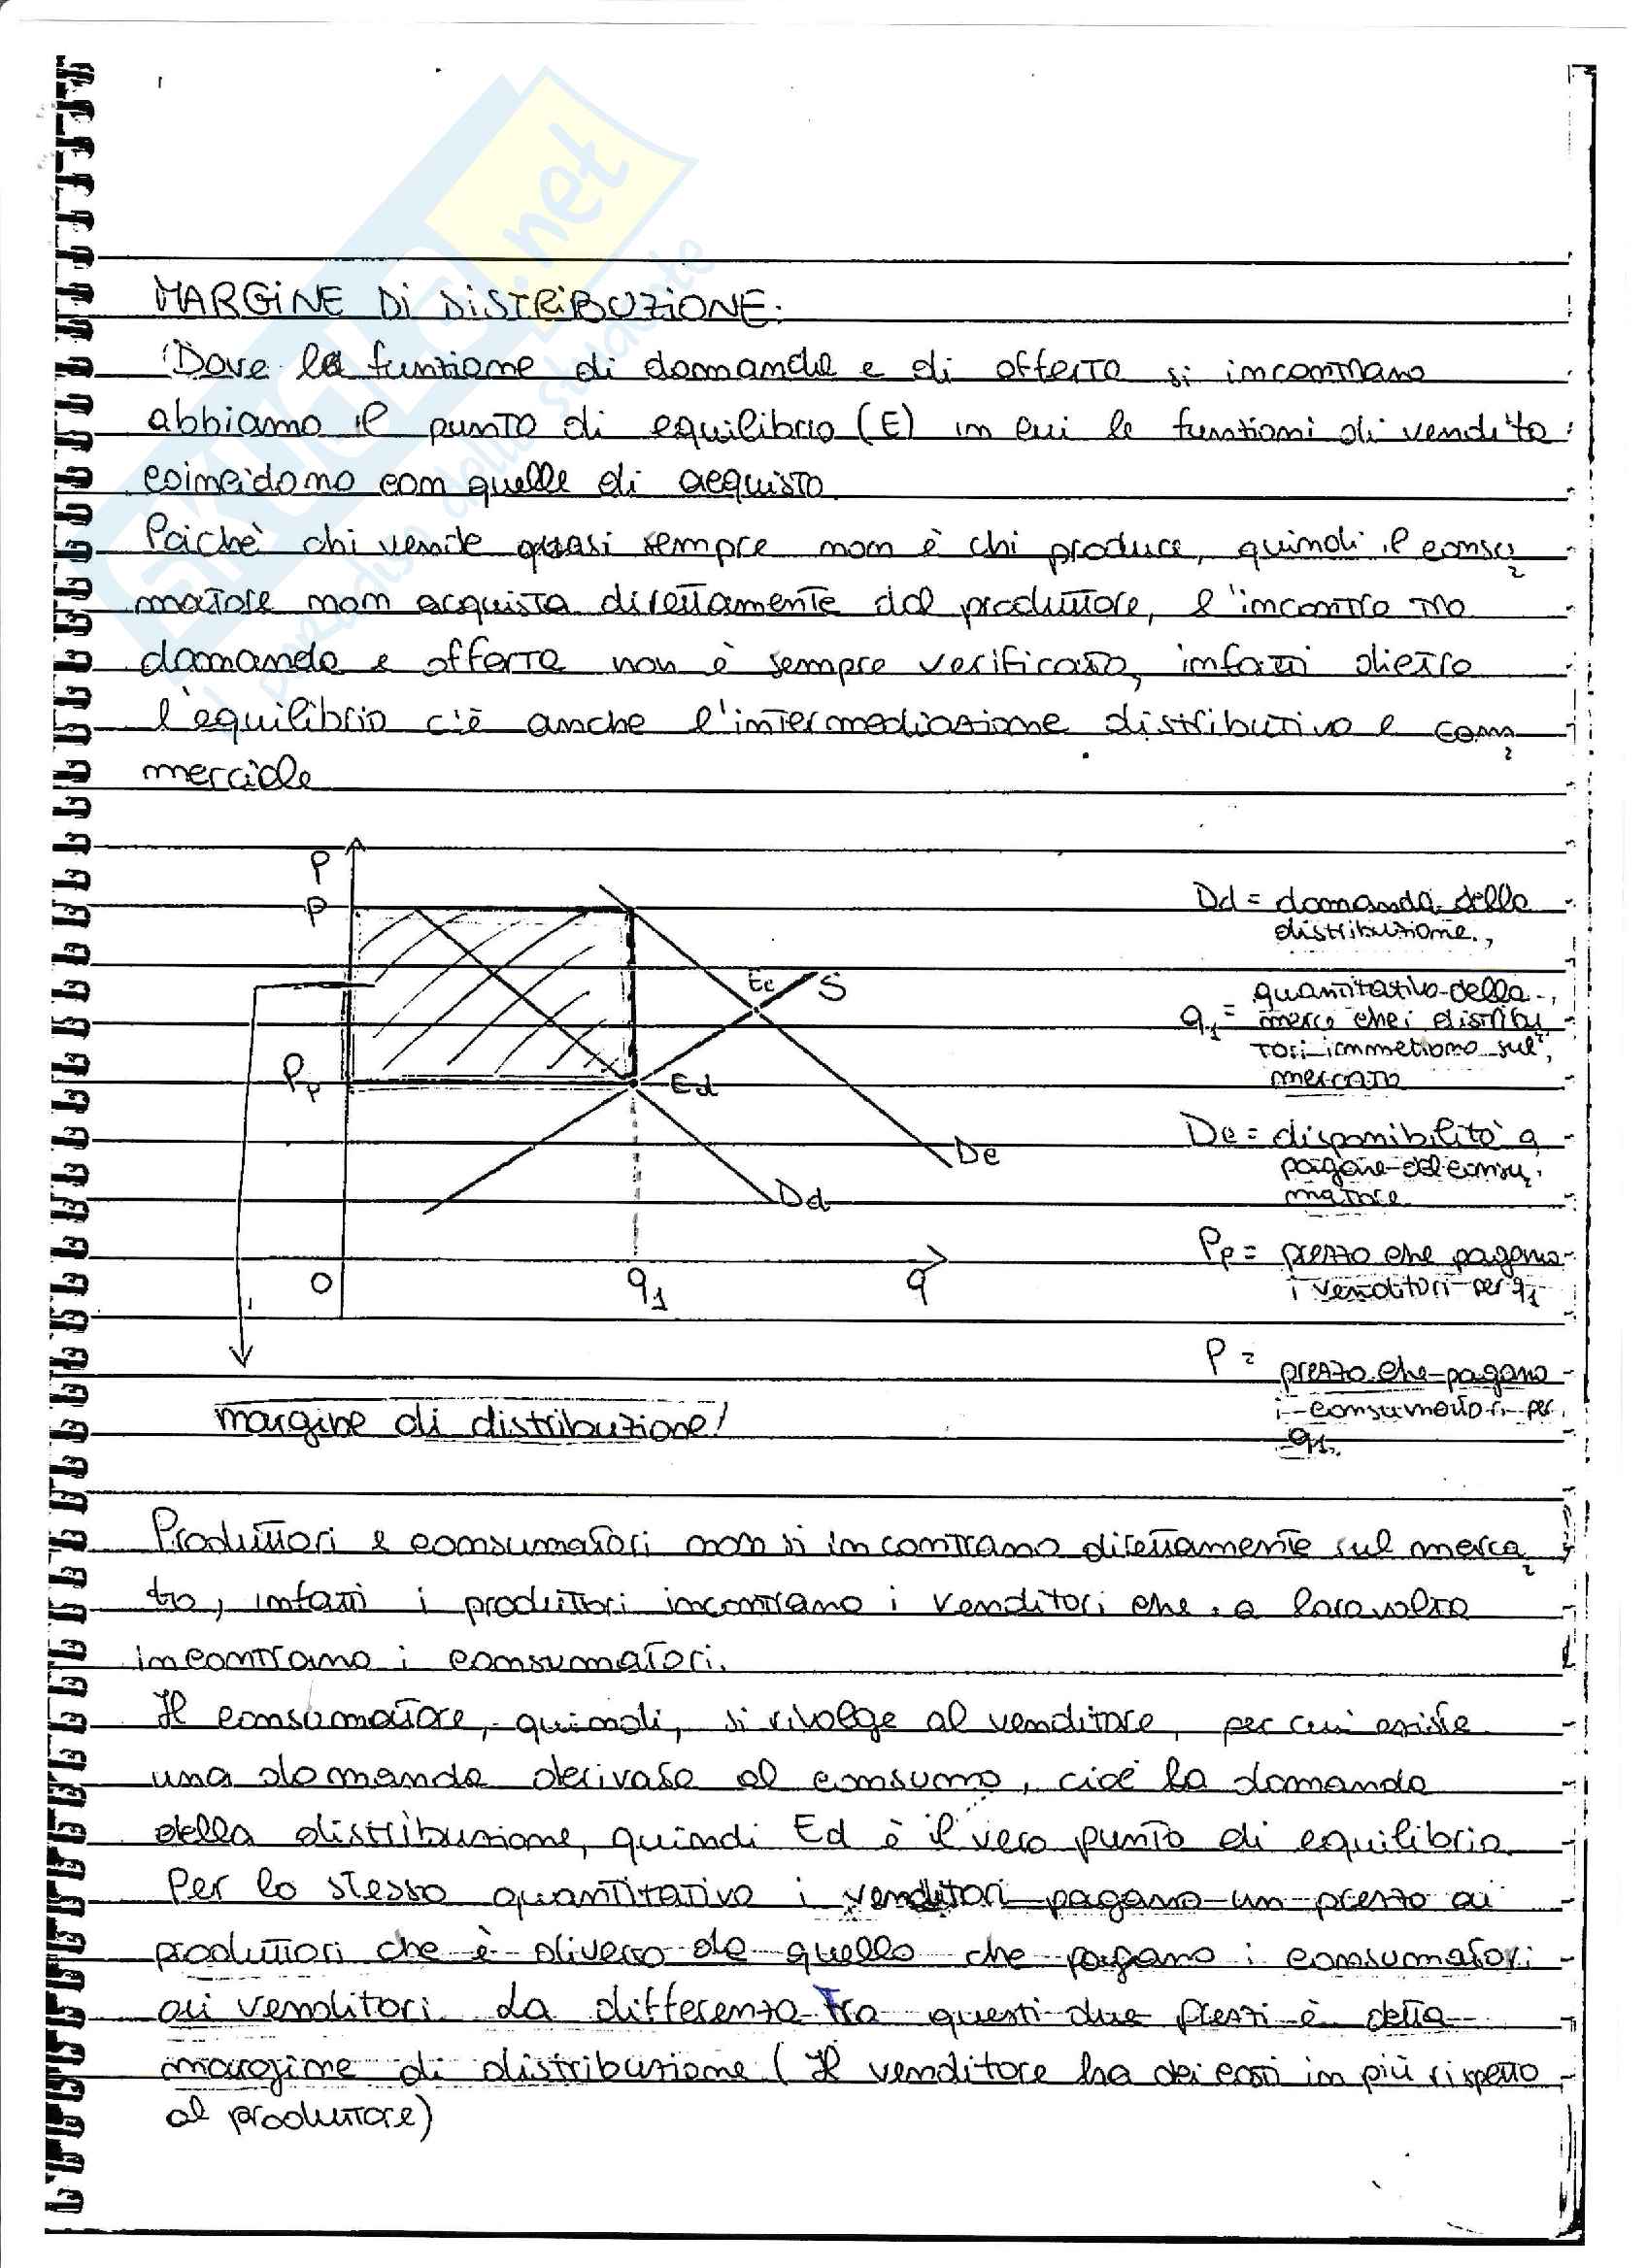 SKUOLA.net
il paradiso dello studente
MARGINE DI DISTRIBUZIONE:
Dove la funzione di domanda e di offerta si incontrano
abbiamo il punto di equilibrio (E) in cui le funzioni di vendita
coincidono con quelle di acquisto
Poichè chi vende quasi sempre non è chi produce, quindi il consu
matore non acquista direttamente dal produttore, l'incontro tra
domanda e offerta non è sempre verificato, infatti dietro
l'equilibrio c'è anche l'intermediazione distributiva e com
merciale
P
P
Pp
Ec
S
Ed
Dc
Dd
O
q1
q
margine di distribuzione!
Dd = domanda della
distribuzione,
q1 = quantitativo della
merce che i distribu
tori immettono sul
mercato
Dc = disponibilità a
pagare del consu
matore
Pp = prezzo che pagano
i venditori per q1
P = prezzo che pagano
i consumatori per
q1.
Produttori e consumatori non si incontrano direttamente sul merca
to, infatti i produttori incontrano i venditori che a loro volta
incontrano i consumatori.
Il consumatore, quindi, si rivolge al venditore, per cui esiste
una domanda derivata al consumo, cioè la domanda
della distribuzione, quindi Ed è il vero punto di equilibrio.
Per lo stesso quantitativo i venditori pagano un prezzo ai
produttori che è diverso da quello che pagano i consumatori
ai venditori. La differenza tra questi due prezzi è detta
margine di distribuzione (Il venditore ha dei costi in più rispetto
al produttore)